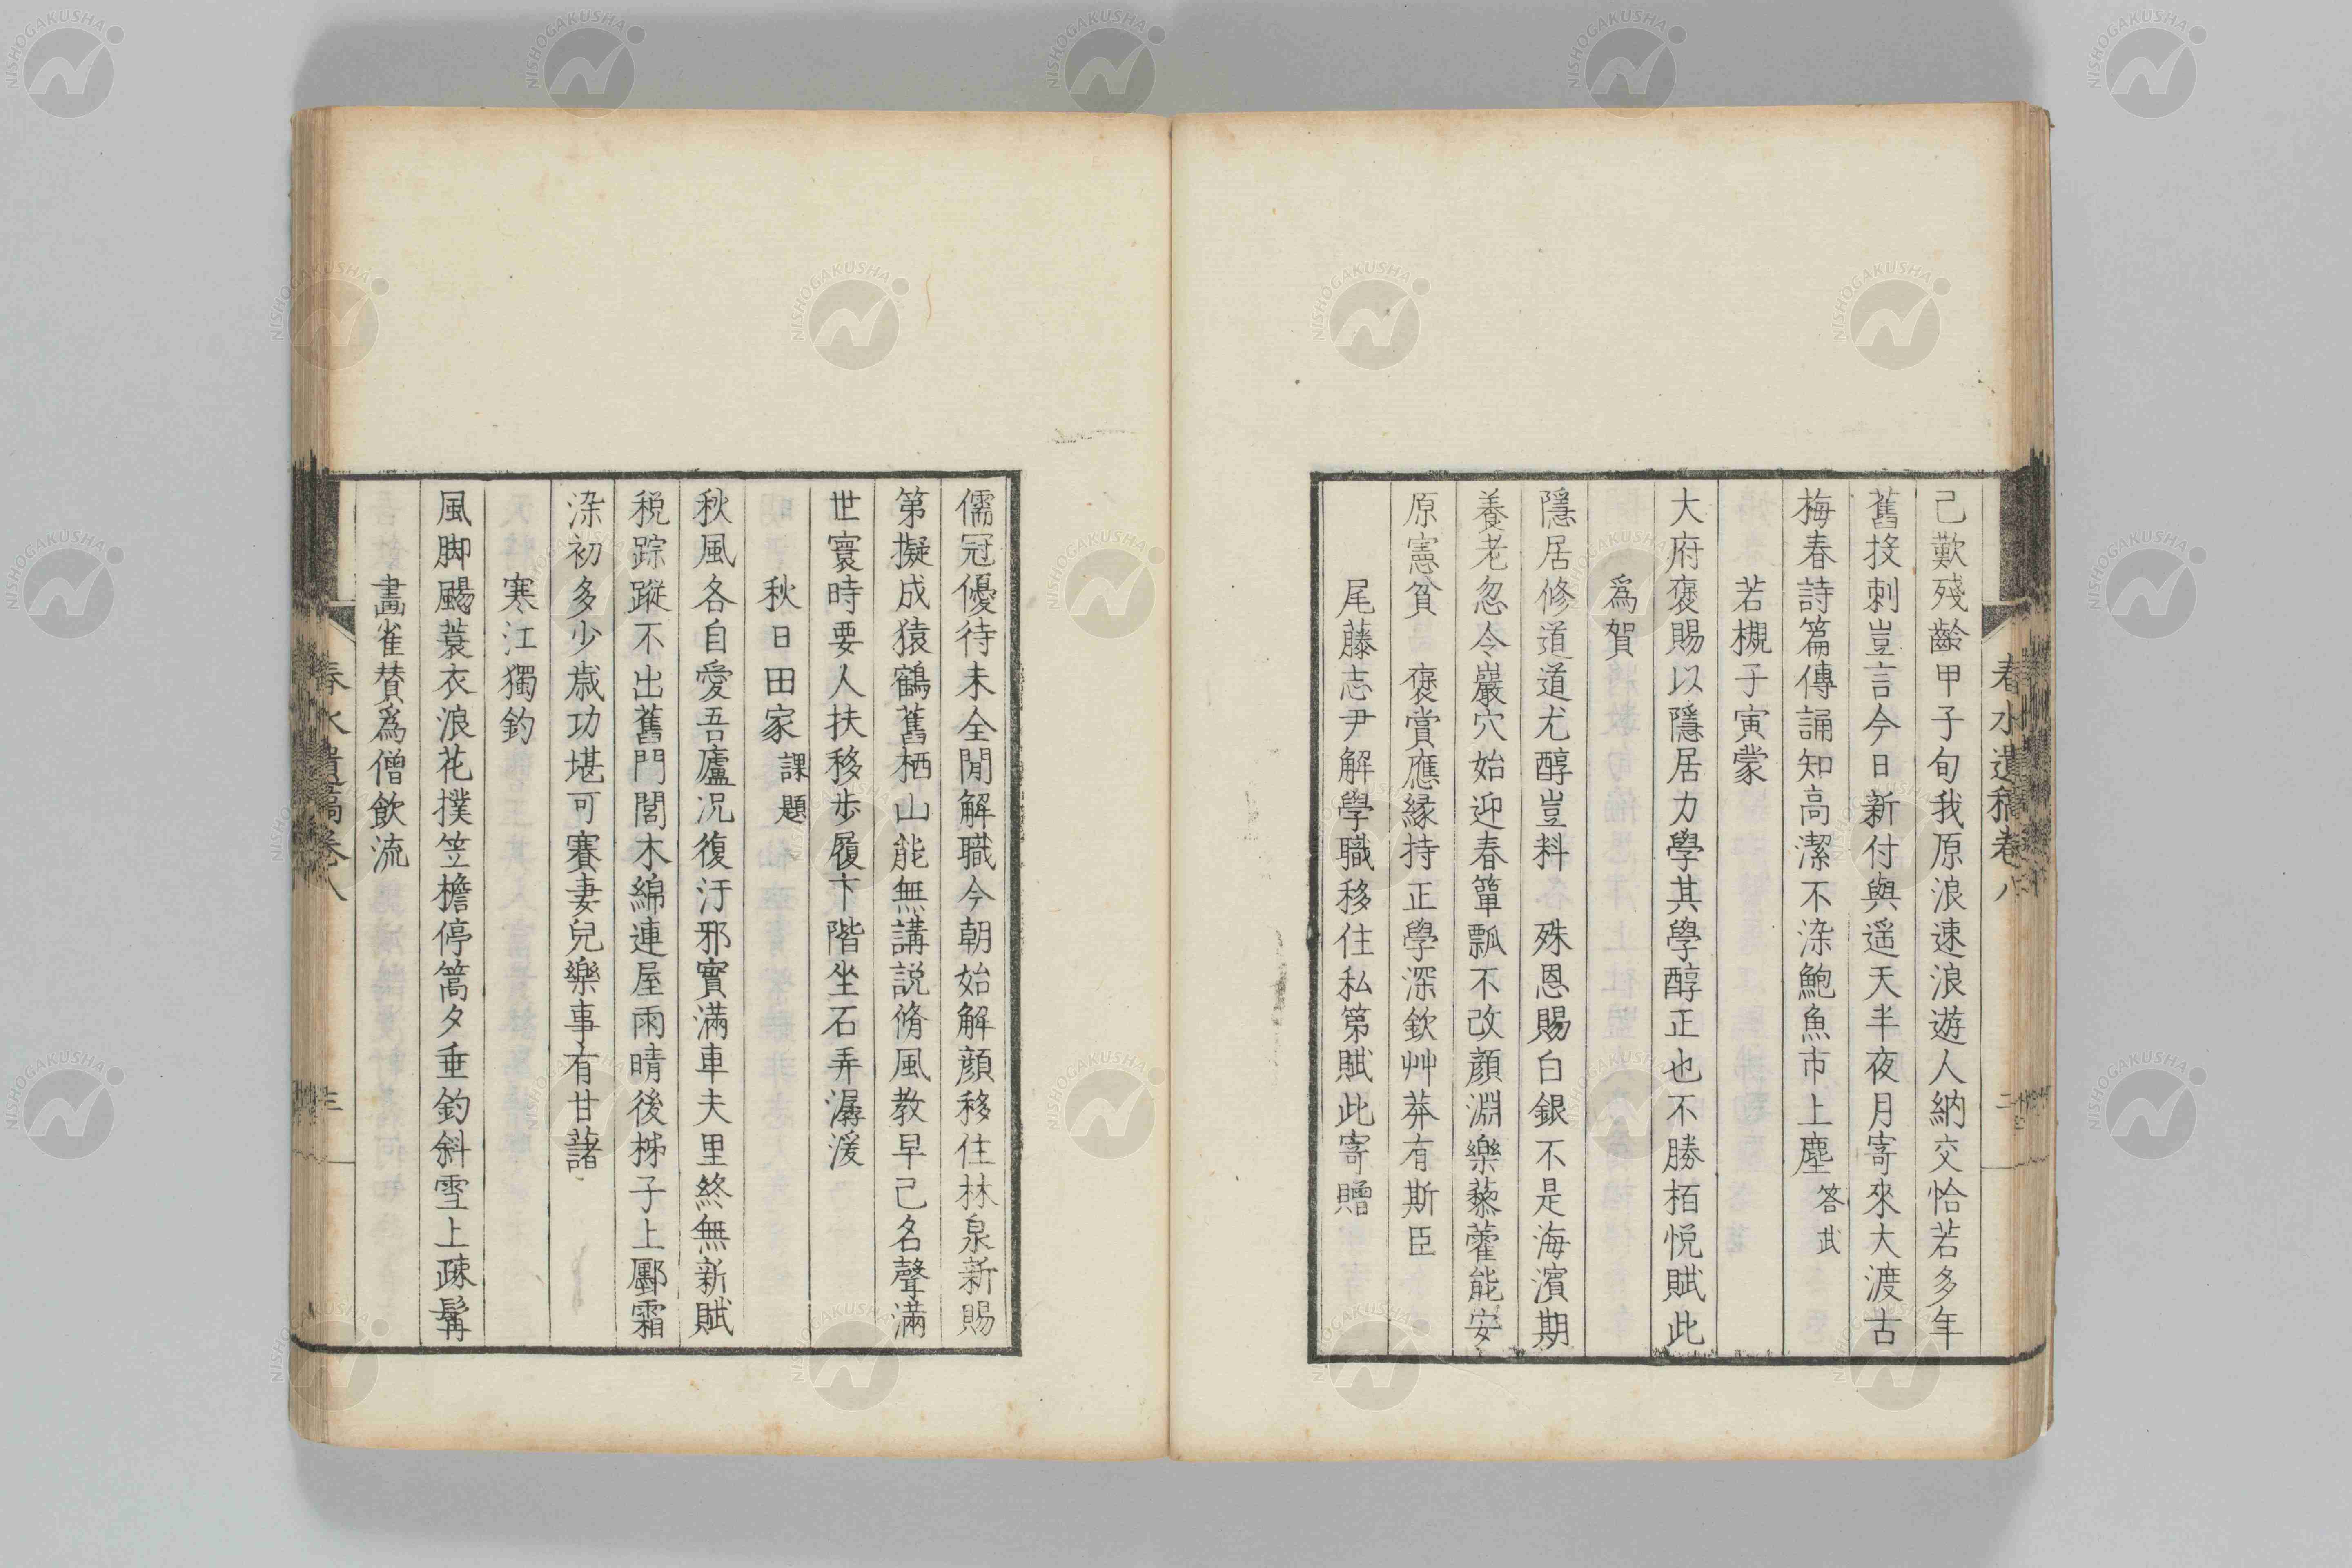 春水遺稿卷八
二
己歎殘齡甲子旬我原浪速浪遊人納交恰若多年
舊投刺豈言今日新付與遥天半夜月寄來大渡古
梅春詩篇傳誦知高潔不染鮑魚市上塵 答武
若槻子寅蒙
大府褒賜以隱居力學其學醇正也不勝栢悦賦此
爲賀
隱居修道道尤醇豈料 殊恩賜白銀不是海濱期
養老忽令巖穴始迎春簞瓢不改顔淵樂藜藿能安
原憲貧 褒賞應緣持正學深欽艸莽有斯臣
尾藤志尹解學職移住私第賦此寄贈
儒冠優待未全閒解職今朝始解顔移住林泉新賜
第擬成猿鶴舊栖山能無講説脩風教早已名聲滿
世寰時要人扶移歩履下階坐石弄潺湲
秋日田家 課題
秋風各自愛吾廬况復汙邪實滿車夫里終無新賦
税踪蹤不出舊門閭木綿連屋雨晴後柹子上郾霜
染初多少歳功堪可賽妻兒樂事有甘藷
寒江獨釣
風脚颺蓑衣浪花撲笠檐停篙夕垂釣斜雪上疎髯
畵雀賛爲僧飲流
春水遺稿卷八
三
NISHOGAKUSHA